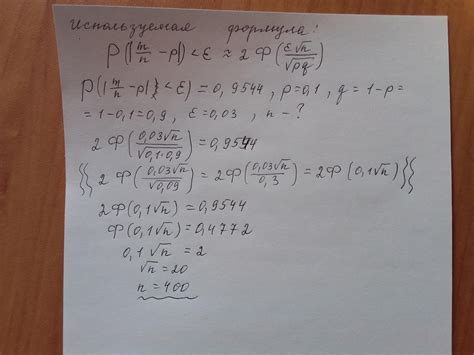 Используемая формула:
P(|m/n - p|) < ε ≈ 2Ф(ε√n/√pq)
P(|m/n - p| < ε) = 0,9544, p = 0,1, q = 1 - p =
= 1 - 0,1 = 0,9, ε = 0,03, n - ?
2Ф(0,03√n/√0,1·0,9) = 0,9544
{{ 2Ф(0,03√n/√0,09) = 2Ф(0,03√n/0,3) = 2Ф(0,1√n) }}
2Ф(0,1√n) = 0,9544
Ф(0,1√n) = 0,4772
0,1√n = 2
√n = 20
n = 400